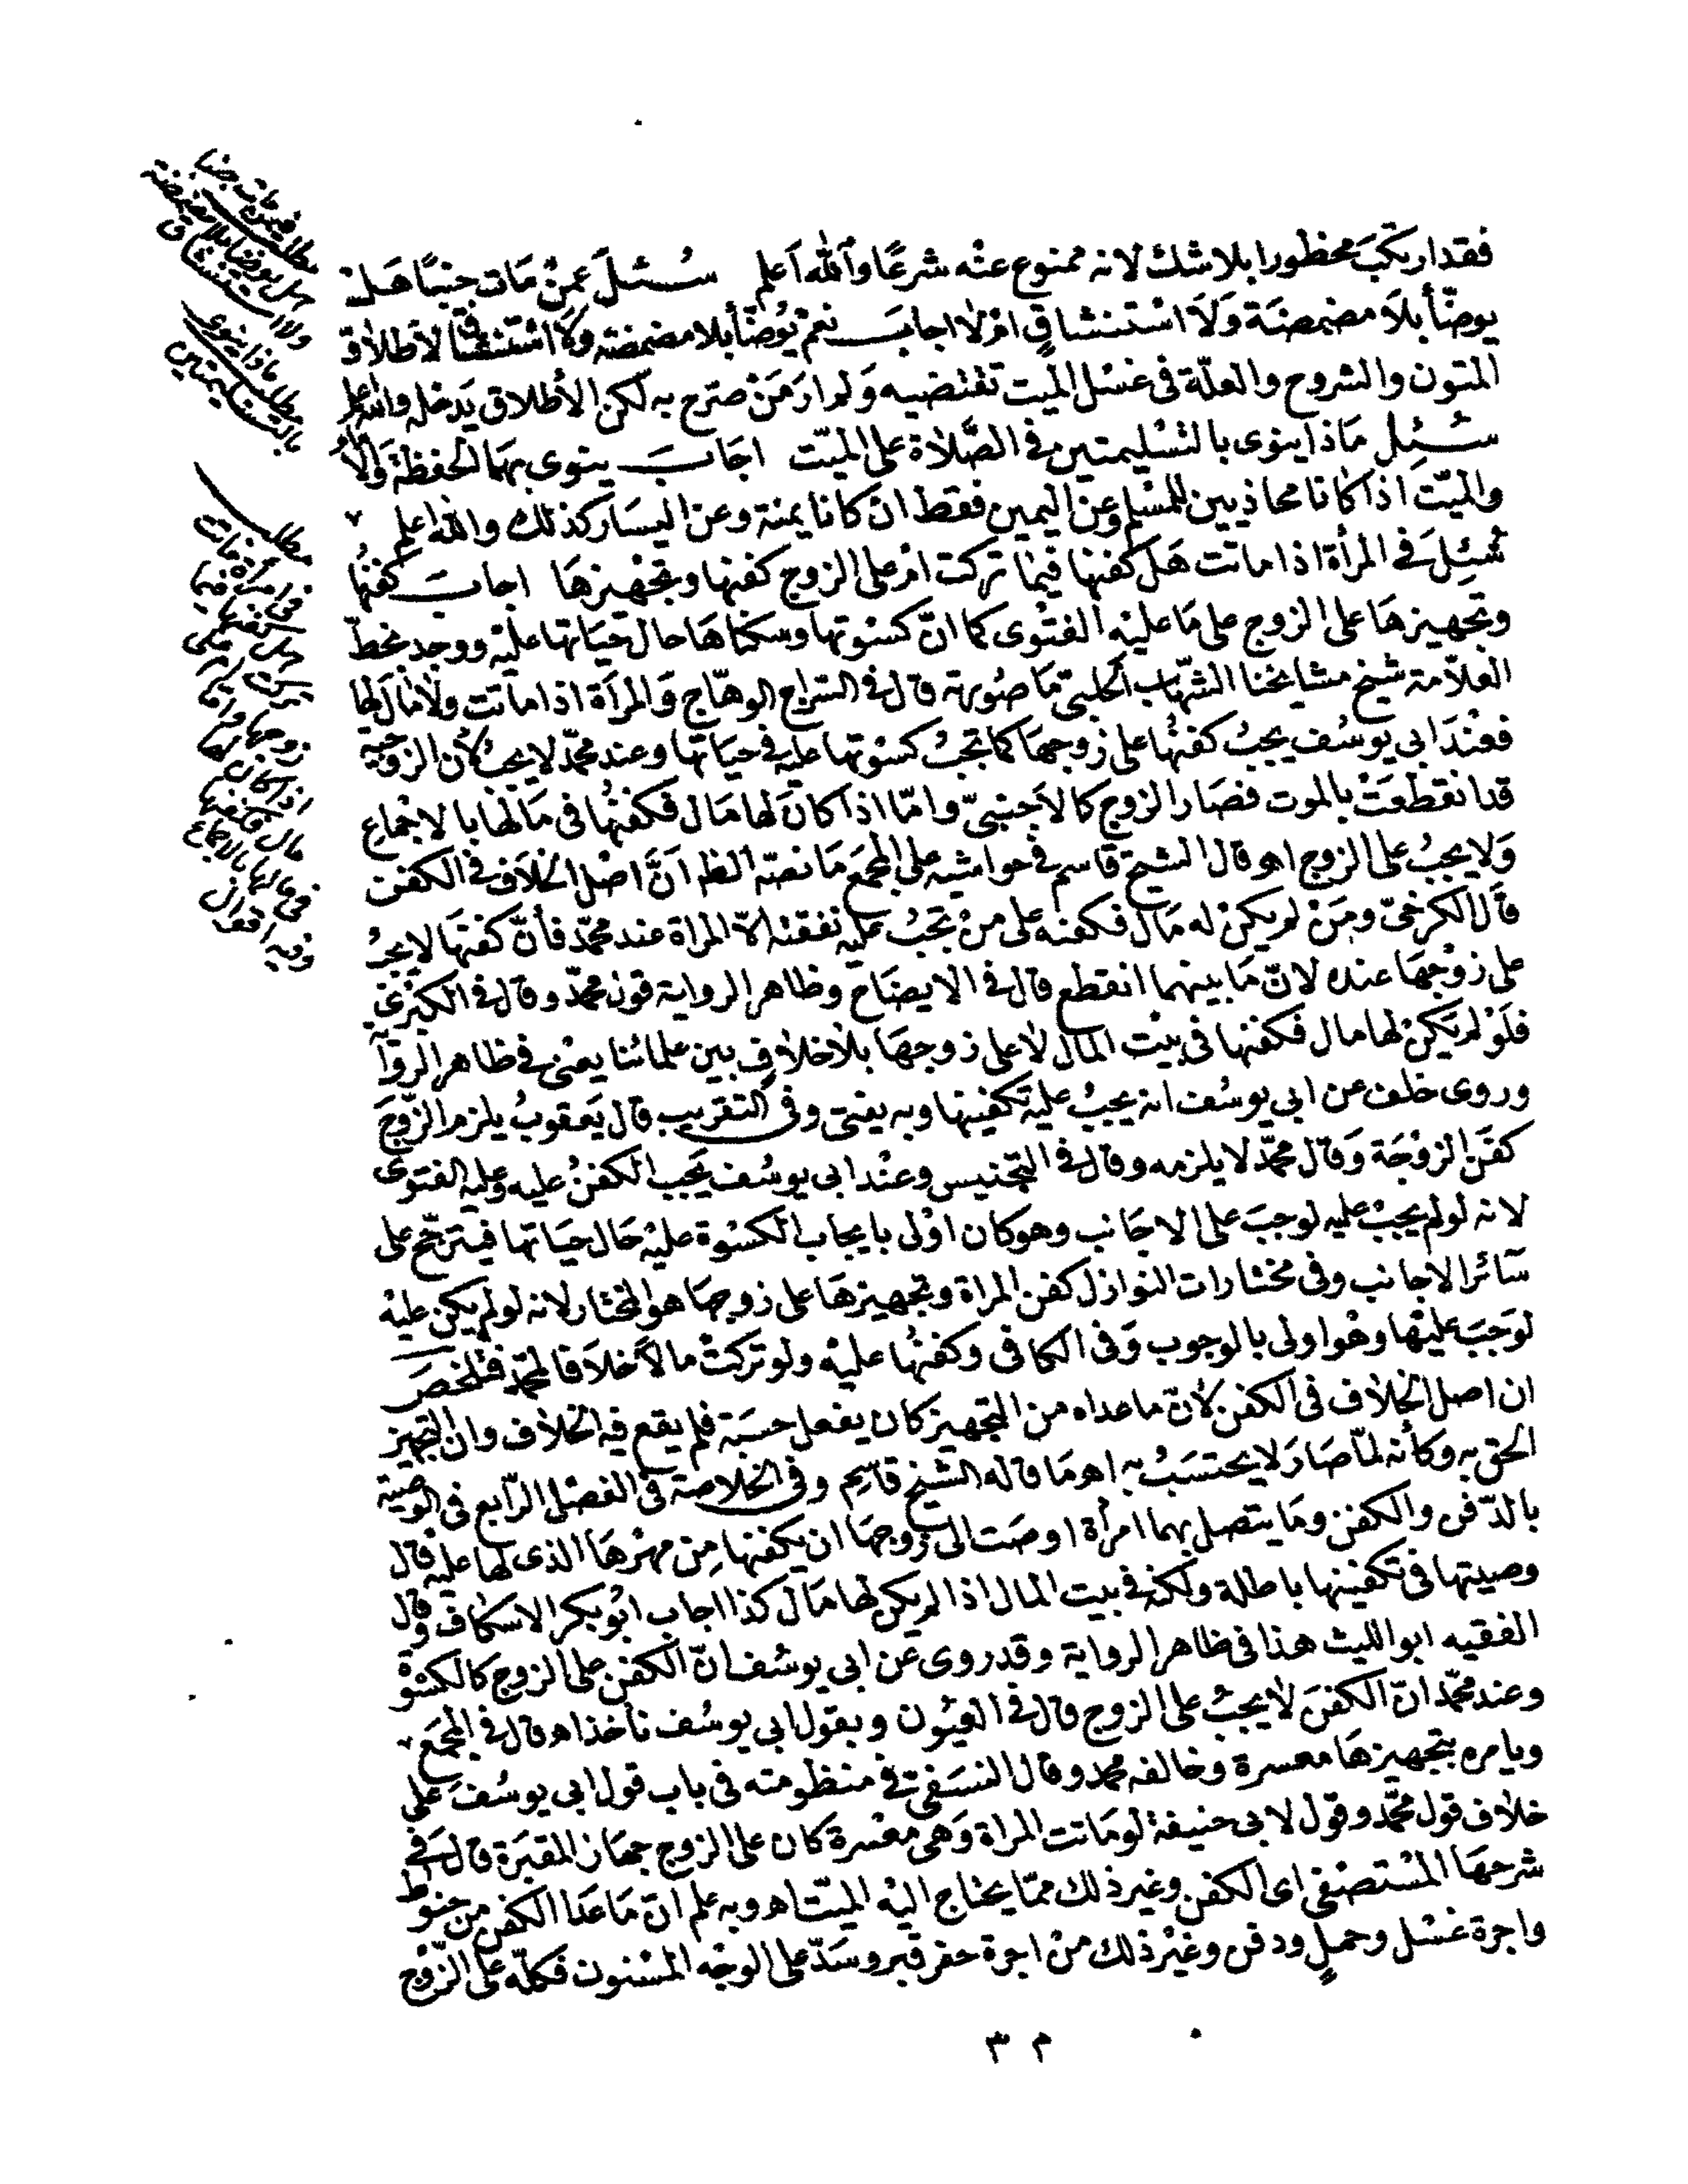 فقد ارتكب محظورا بلا شك لانه ممنوع عنه شرعا والله اعلم سئل عمن مات جنبا هل
يوضأ بلا مضمضة ولا استنشاق ام لا اجاب نعم يوضأ بلا مضمضة ولا استنشاق لاطلاق
المتون والشروح والعلة في غسل الميت تقتضيه ولم ار من صرح به لكن الاطلاق يدخله والله اعلم
سئل ماذا ينوى بالتسليمتين في الصلاة على الميت اجاب ينوى بهما الحفظة والا
والميت اذا كانا محاذيين للمسلم وعن اليمين فقط ان كانا يمنة وعن اليسار كذلك والله اعلم
سئل في المرأة اذا ماتت هل كفنها فيما تركت ام على الزوج كفنها وتجهيزها اجاب كفنها
وتجهيزها على الزوج على ما عليه الفتوى كما ان كسوتها وسكناها حال حياتها عليه ووجد بخط
العلامة شيخ مشايخنا الشهاب الحلبي ما صورته قال في السراج الوهاج والمرأة اذا ماتت ولا مال لها
فعند ابي يوسف يجب كفنها على زوجها كما تجب كسوتها عليه في حياتها وعند محمد لا يجب لان الزوجية
قد انقطعت بالموت فصار الزوج كالاجنبي واما اذا كان لها مال فكفنها في مالها بالاجماع
ولا يجب على الزوج اهو قال الشيخ قاسم في حواشيه على المجمع ما نصه الظ ان اصل الخلاف في الكفن
قال الكرخي ومن لم يكن له مال فكفنه على من تجب عليه نفقته الا المراة عند محمد فأن كفنها لا يجب
على زوجها عنده لان ما بينهما انقطع قال في الايضاح وظاهر الرواية قول محمد وقال في الكبرى
فلو لم يكن لها مال فكفنها في بيت المال لا على زوجها بلا خلاف بين علمائنا يعني في ظاهر الروا
وروى خلف عن ابي يوسف انه يجب عليه تكفينها وبه يفتى وفى التقريب قال يعقوب يلزم الزوج
كفن الزوجة وقال محمد لا يلزمه وقال في التجنيس وعند ابي يوسف يجب الكفن عليه وعليه الفتوى
لانه لو لم يجب عليه لوجب على الاجانب وهو كان اولى بايجاب الكسوة عليه حال حياتها فيترجح على
سائر الاجانب وفى مختارات النوازل كفن المراة وتجهيزها على زوجها هو المختار لانه لو لم يكن عليه
لوجب عليها وهو اولى بالوجوب وفى الكافى وكفنها عليه ولو تركت مالا خلافا لمحمد فتلخص
ان اصل الخلاف فى الكفن لان ما عداه من التجهيز كان يفعل حسبة فلم يقع فيه الخلاف وان التجهيز
الحق به وكأنه لما صار لا يحتسب به اهو ما قاله الشيخ قاسم وفى الخلاصة فى الفصل الرابع فى الوصية
بالدفن والكفن وما يتصل بهما امرأة اوصت الى زوجها ان يكفنها من مهرها الذى لها عليه قال
وصيتها فى تكفينها باطلة ولكنه فى بيت المال اذا لم يكن لها مال كذا اجاب ابو بكر الاسكاف وقال
الفقيه ابو الليث هذا فى ظاهر الرواية وقد روى عن ابى يوسف ان الكفن على الزوج كالكسوة
وعند محمد ان الكفن لا يجب على الزوج قال فى العيون وبقول ابى يوسف ناخذ اه قال فى المجمع
ويامره بتجهيزها معسرة وخالفه محمد وقال النسفى فى منظومته فى باب قول ابى يوسف على
خلاف قول محمد وقول لابى حنيفة لو ماتت المراة وهى معسرة كان على الزوج جهاز المقبرة قال فى
شرحها المستصفى اى الكفن وغير ذلك مما يحتاج اليه الميت اه وبه علم ان ما عدا الكفن من حنوط
واجرة غسل وحمل ودفن وغير ذلك من اجرة حفر قبر وسد على الوجه المسنون فكله على الزوج
مطلب فيمن مات جنبا
هل يوضأ بلا مضمضة
ولا استنشاق
مطلب ماذا ينوى
بالتسليمتين
مطلب